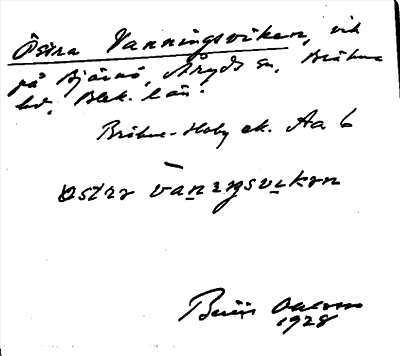 Östra Vanningsviken, vik
på Tjärnö, Åryds sn, Bräkne
hd, Blek. län.
Bräkne-Hoby ek. Aa 6
ostra vaningsvikan
1928